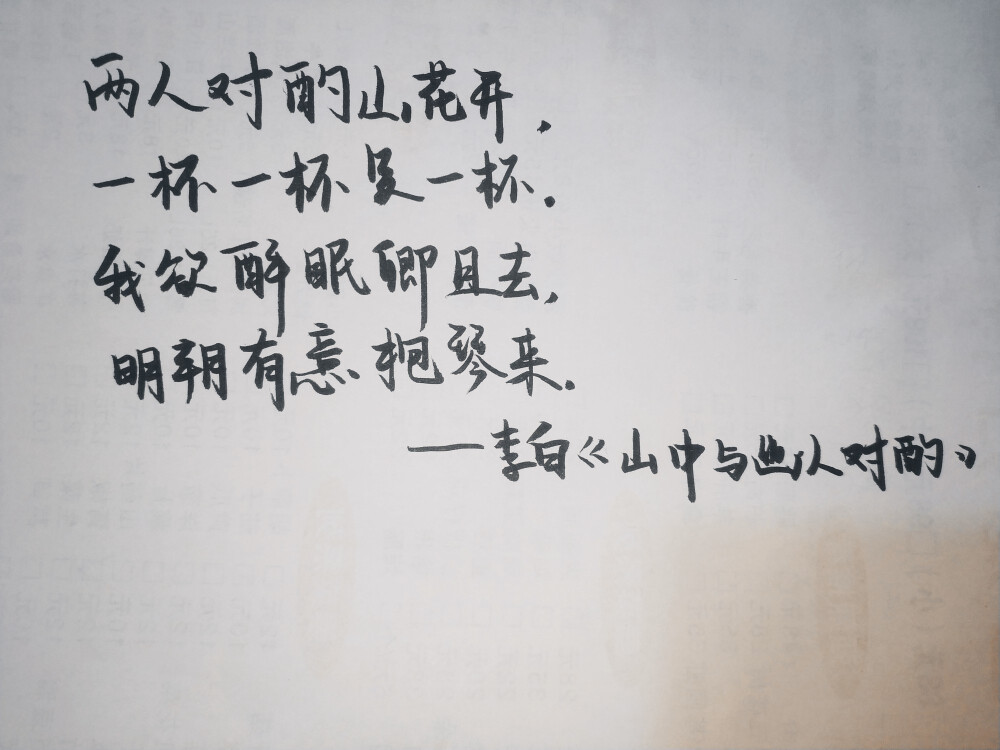 两人对酌山花开，
一杯一杯复一杯。
我欲醉眠卿且去，
明朝有意抱琴来。
——李白《山中与幽人对酌》